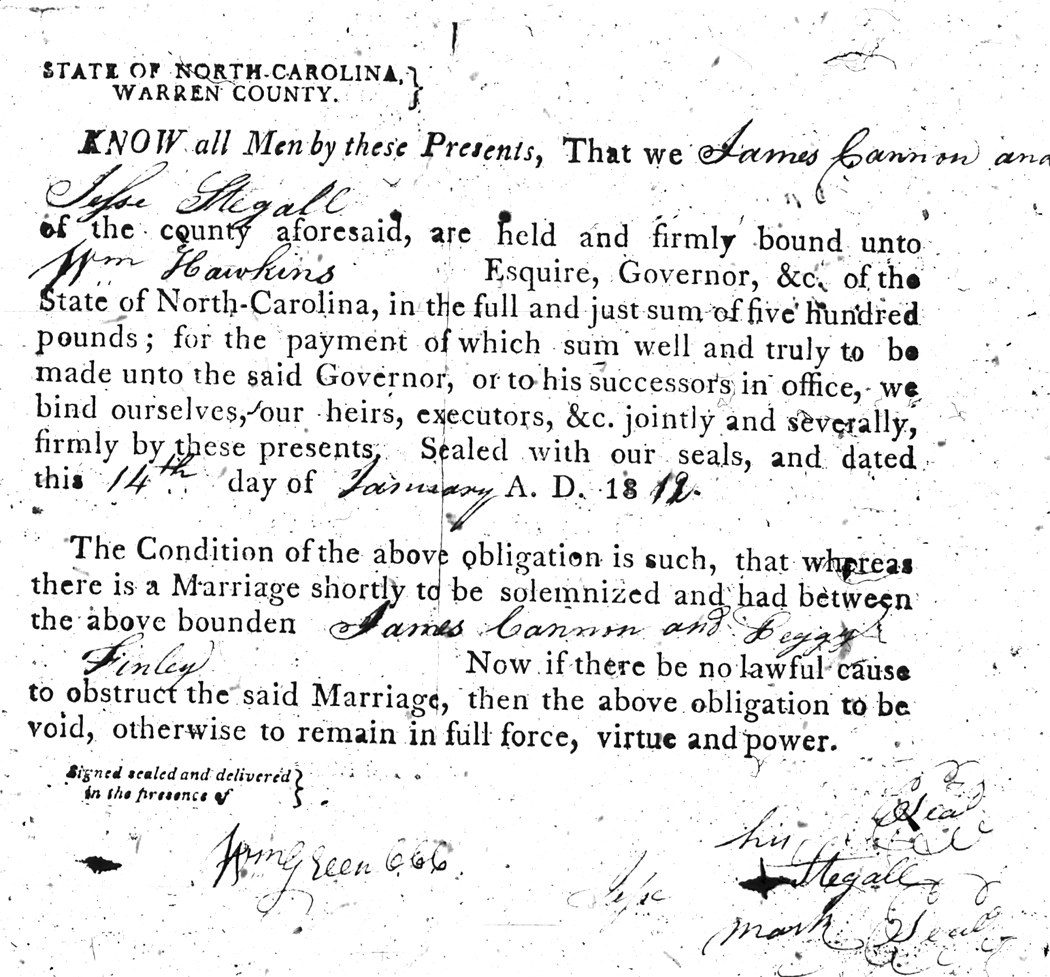 STATE OF NORTH-CAROLINA,
WARREN COUNTY.
KNOW all Men by these Presents, That we James Cannon and
Jesse Stegall
of the county aforesaid, are held and firmly bound unto
Wm Hawkins Esquire, Governor, &c. of the
State of North-Carolina, in the full and just sum of five hundred
pounds; for the payment of which sum well and truly to be
made unto the said Governor, or to his successors in office, we
bind ourselves, our heirs, executors, &c. jointly and severally,
firmly by these presents. Sealed with our seals, and dated
this 14th day of January A. D. 1812.
The Condition of the above obligation is such, that whereas
there is a Marriage shortly to be solemnized and had between
the above bounden James Cannon and Peggy
Finley Now if there be no lawful cause
to obstruct the said Marriage, then the above obligation to be
void, otherwise to remain in full force, virtue and power.
Signed sealed and delivered
in the presence of
Seal
his
Wm Green CCC.
Jesse Stegall
mark Seal